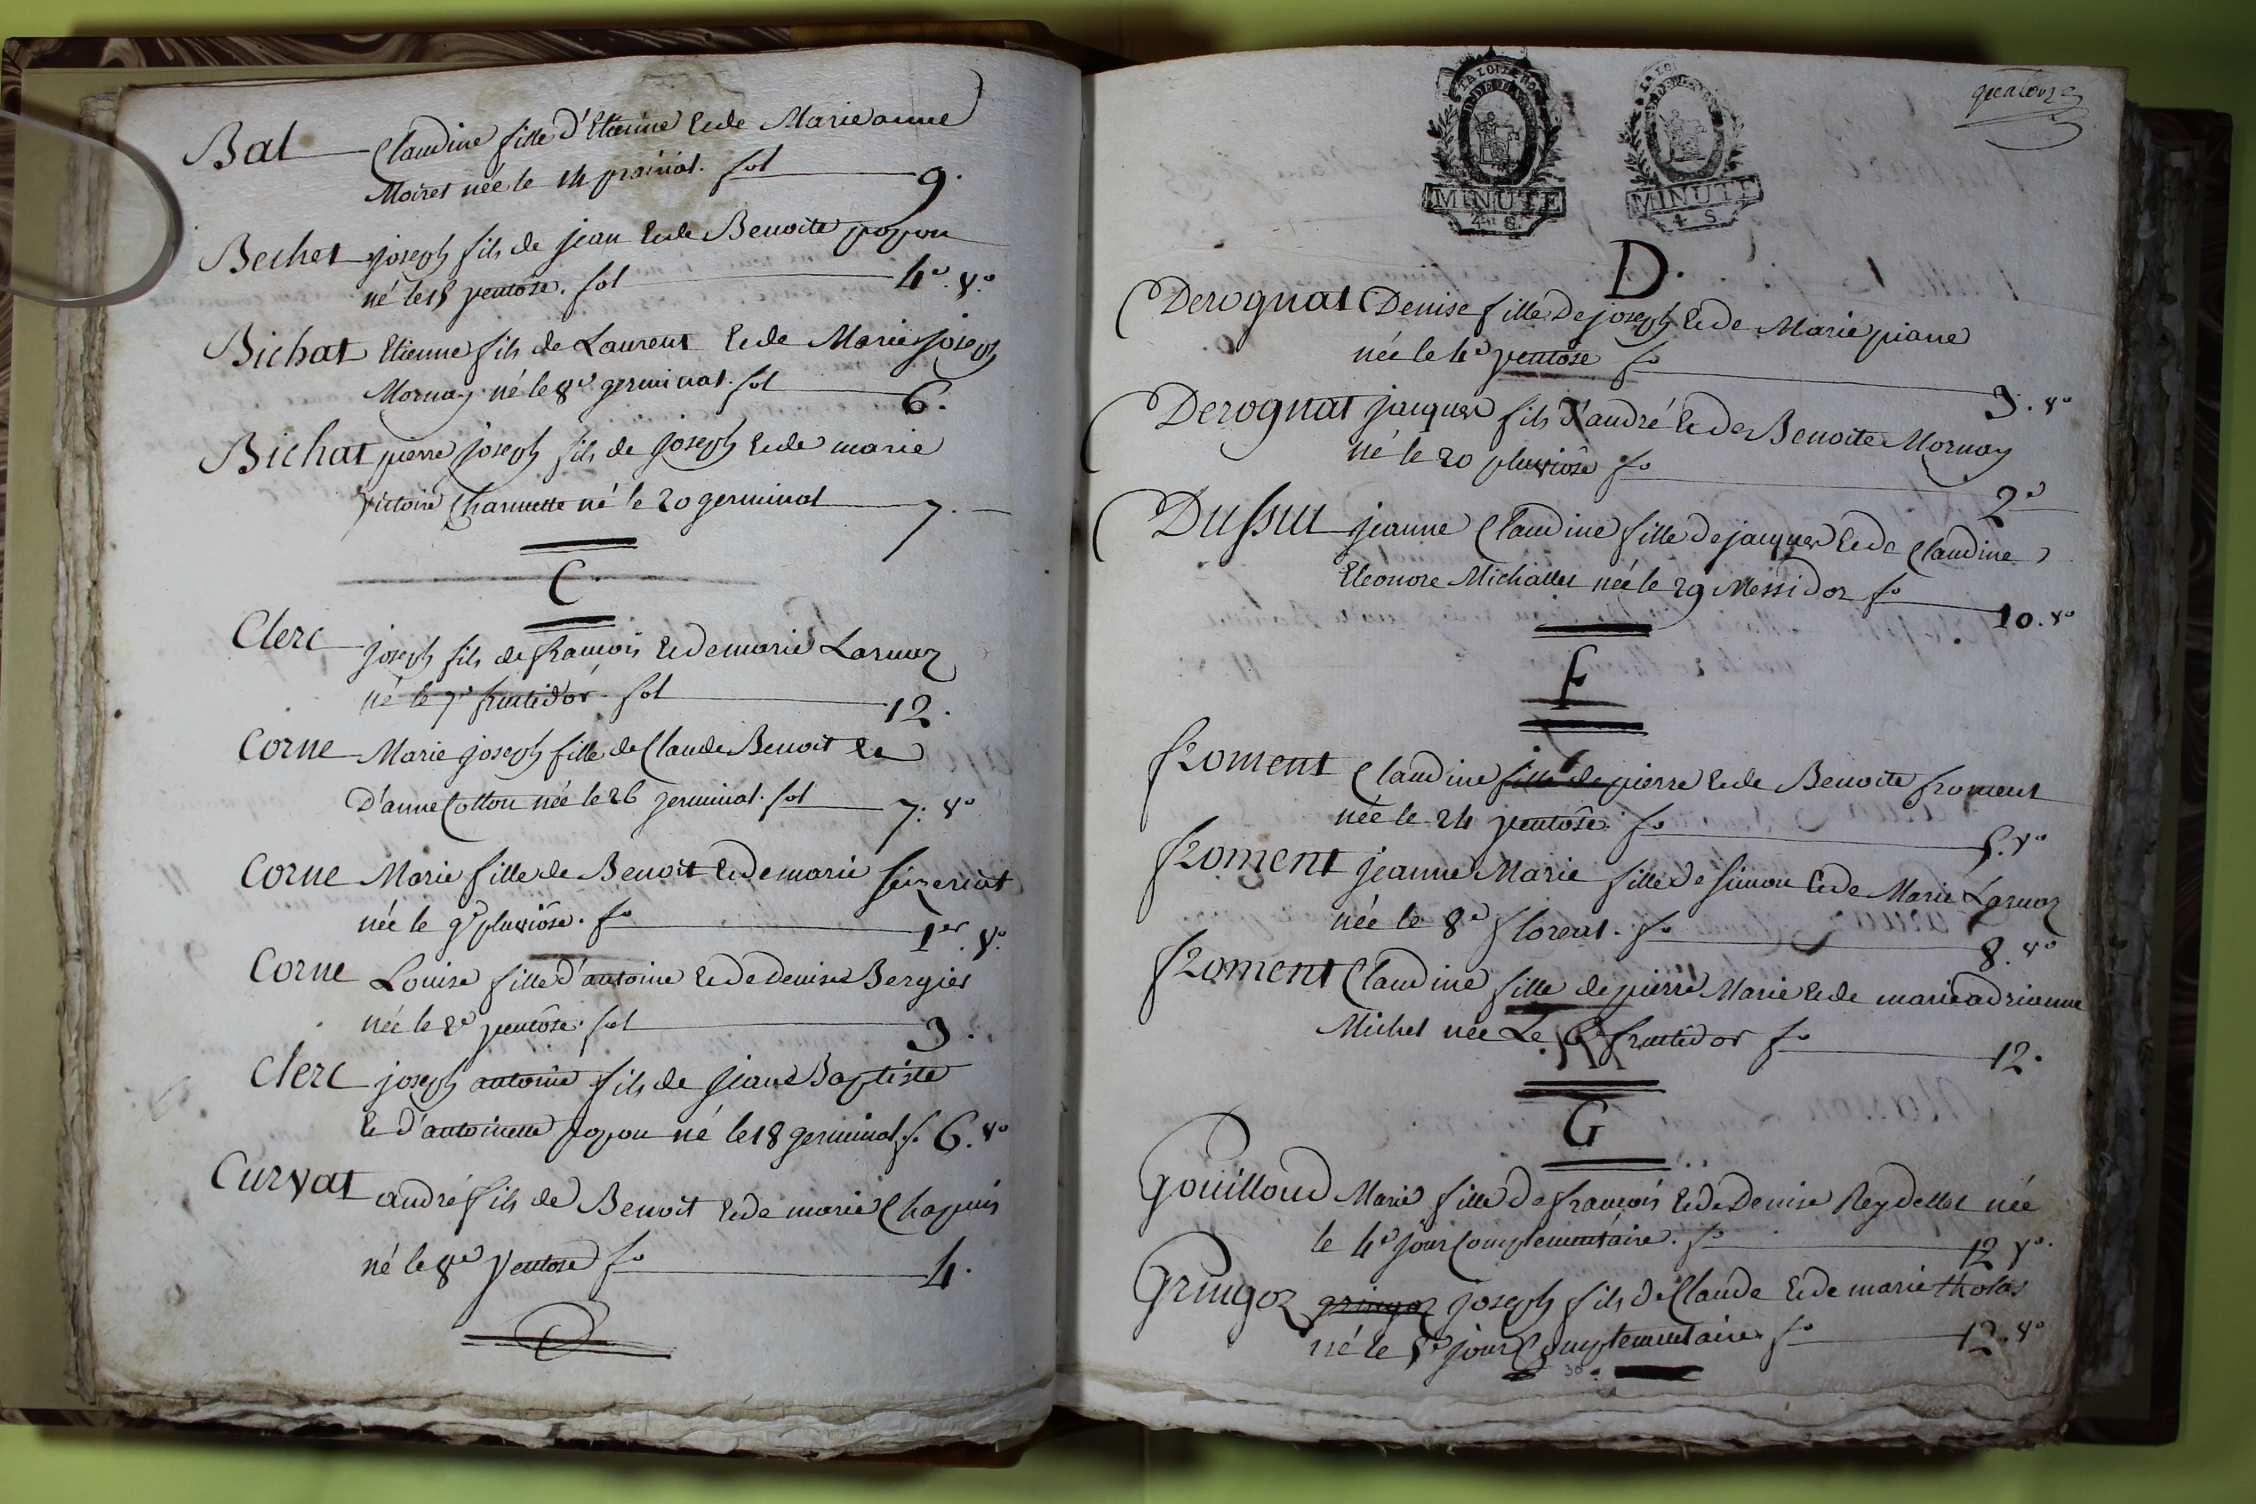 Bal Claudine fille d'Etienne & de Marie anne
Moiret née le 14 prairial. fol 9.
Bechet joseph fils de jean & de Benoite popon
né le 15 ventôse. fol 4e. vo.
Bichat Etienne fils de Laurent & de Marie joseph
Mornay né le 8e germinal. fol 6.
Bichat pierre joseph fils de joseph & de marie
victoire Charmette né le 20 germinal 7.
C
Clerc joseph fils de françois & de marie Larmoz
né le 7e fructidor. fol 12.
Corne Marie joseph fille de Claude Benoit &
D'anne Cotton née le 26 germinal. fol 7. vo
Corne Marie fille de Benoit & de marie
née le 9e pluviôse. fo 1er. vo.
Corne Louise fille d'antoine & de denise Bergier
née le 2e ventôse. fol 3.
Clerc joseph antoine fils de jean Baptiste
& d'antoinette popon né le 18 germinal f. 6. vo
Curvat andré fils de Benoit & de marie Chapuis
né le 8e Ventose fo 4.
quatorze
MINUTE
4 S
MINUTE
4 S
D.
Derognat Denise fille de joseph & de Marie piane
née le 4e ventôse fo 3. vo
Derognat jacques fils d'andré & de Benoite Mornay
né le 20 pluviôse fo 2e
Dussuc jeanne Claudine fille de jacques & de Claudine
Eleonore Michallet née le 29 Messidor fo 10. vo
F
froment Claudine fille de pierre & de Benoite froment
née le 24 ventôse. fo 5. vo
froment jeanne Marie fille de simon & de Marie Larmoz
née le 8e floreal. fo 8. vo
froment Claudine fille de pierre Marie & de marie adrianne
Michel née Le 6 fructidor fo 12.
G
Gouilloud Marie fille de françois & de Denise Reydellet née
le 4e jour Complementaire. fo 12 vo.
Gringoz gringoz joseph fils de Claude & de marie tholas
né le 5e jour Complementaire. fo 12. vo
30